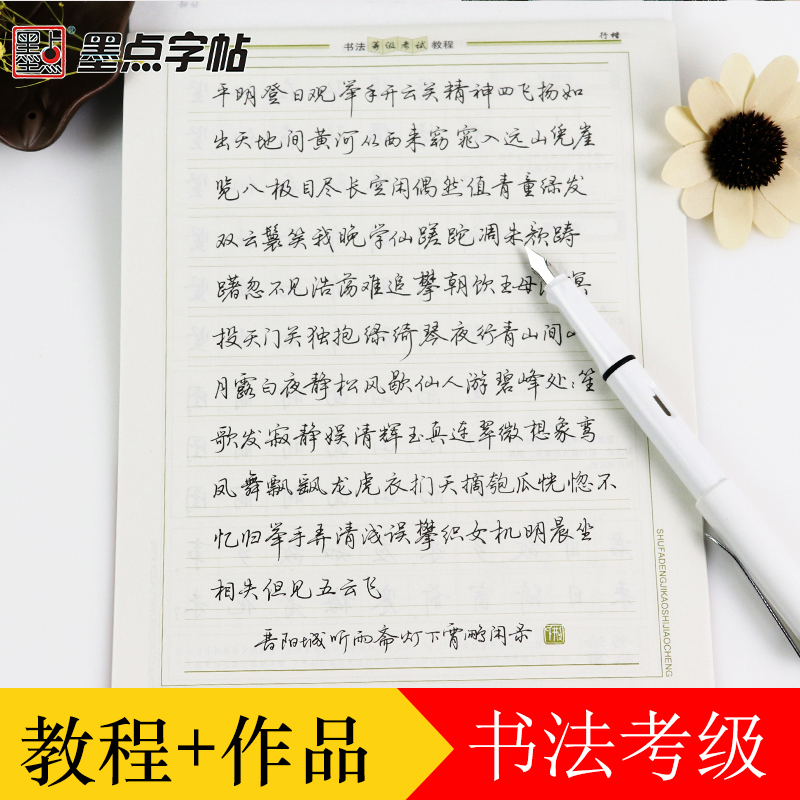 墨点 墨点字帖
®
书法等级考试教程
行楷
平明登日观举手开云关精神四飞扬如
出天地间黄河从西来窈窕入远山凭崖
览八极目尽长空闲偶然值青童绿发
双云鬟笑我晚学仙蹉跎凋朱颜踌
躇忽不见浩荡难追攀朝饮王母
投天门关独抱绿绮琴夜行青山间
月露白夜静松风歇仙人游碧峰处笙
歌发寂静娱清辉玉真连翠微想象鸾
凤舞飘飖龙虎衣扪天摘匏瓜恍惚不
忆归举手弄清浅误攀织女机明晨坐
相失但见五云飞
晋阳城听雨斋灯下霄鹏闲录
SHUFADENGJIKAOSHIJIAOCHENG
教程+作品
书法考级